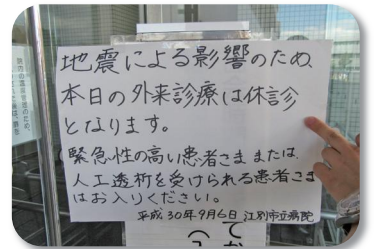 地震による影響のため、
本日の外来診療は休診
となります。
緊急性の高い患者さま または、
人工透析を受けられる患者さま
はお入りください。
平成30年9月6日 江別市立病院